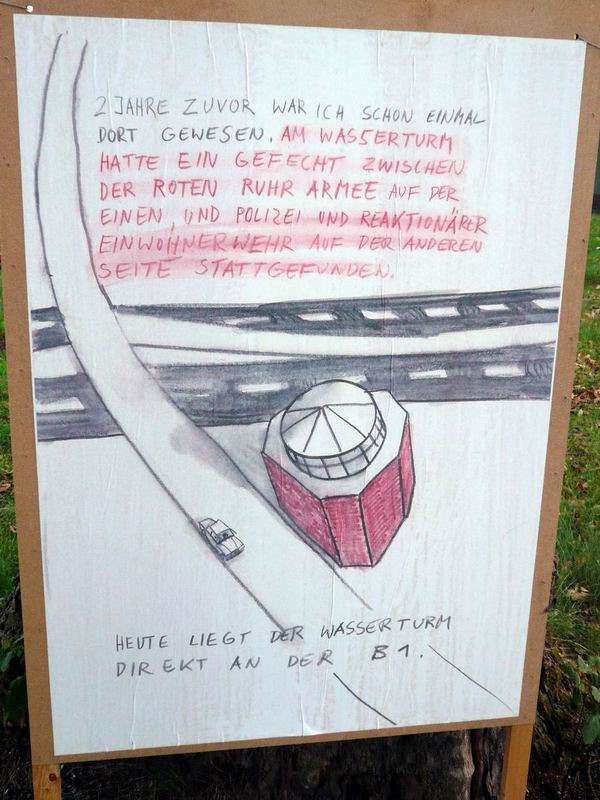 2 JAHRE ZUVOR WAR ICH SCHON EINMAL
DORT GEWESEN. AM WASSERTURM
HATTE EIN GEFECHT ZWISCHEN
DER ROTEN RUHR ARMEE AUF DER
EINEN, UND POLIZEI UND REAKTIONÄRER
EINWOHNERWEHR AUF DER ANDEREN
SEITE STATTGEFUNDEN.
HEUTE LIEGT DER WASSERTURM
DIREKT AN DER B1.